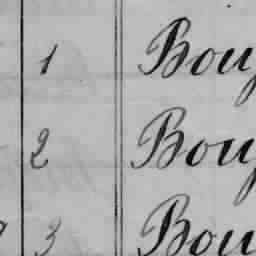 1 Bou
2 Bou
3 Bou